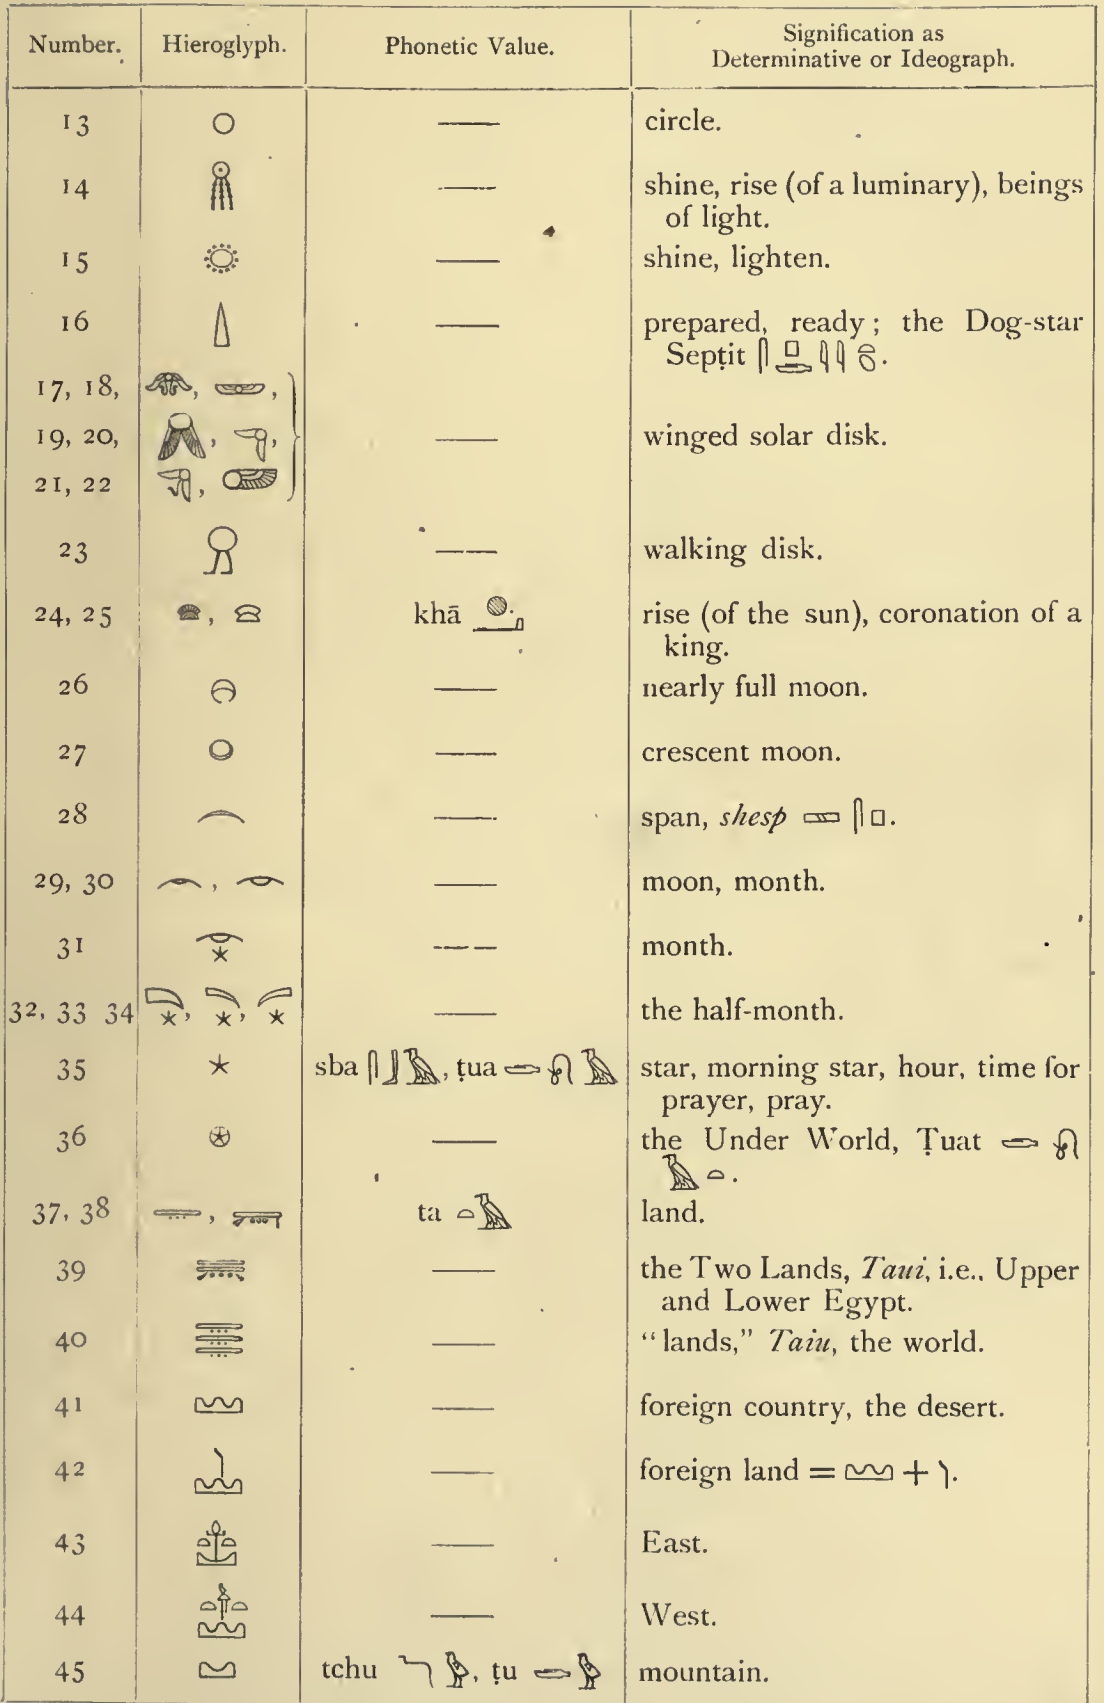 Number. Hieroglyph. Phonetic Value. Signification as
Determinative or Ideograph.
13 — circle.
14 — shine, rise (of a luminary), beings
of light.
15 — shine, lighten.
16 — prepared, ready; the Dog-star
Sepṭit 𓋴𓊪𓂧𓇋𓇋𓏏.
17, 18,
19, 20, — winged solar disk.
21, 22
23 — walking disk.
24, 25 𓈍, khā 𓐍𓂝 rise (of the sun), coronation of a
king.
26 — nearly full moon.
27 — crescent moon.
28 — span, shesp 𓈙𓋴𓊪.
29, 30 — moon, month.
31 — month.
32, 33 34 — the half-month.
35 𓇼 sba 𓋴𓃀𓄿, ṭua 𓂧𓍯𓄿 star, morning star, hour, time for
prayer, pray.
36 𓇽 — the Under World, Ṭuat 𓂧𓍯
𓄿𓏏.
37, 38 𓇾, 𓇿 ta 𓏏𓄿 land.
39 — the Two Lands, Taui, i.e., Upper
and Lower Egypt.
40 — "lands," Taiu, the world.
41 𓈉 — foreign country, the desert.
42 — foreign land = 𓈉 + 𓌙.
43 — East.
44 — West.
45 𓈋 tchu 𓆓𓅱, ṭu 𓂧𓅱 mountain.